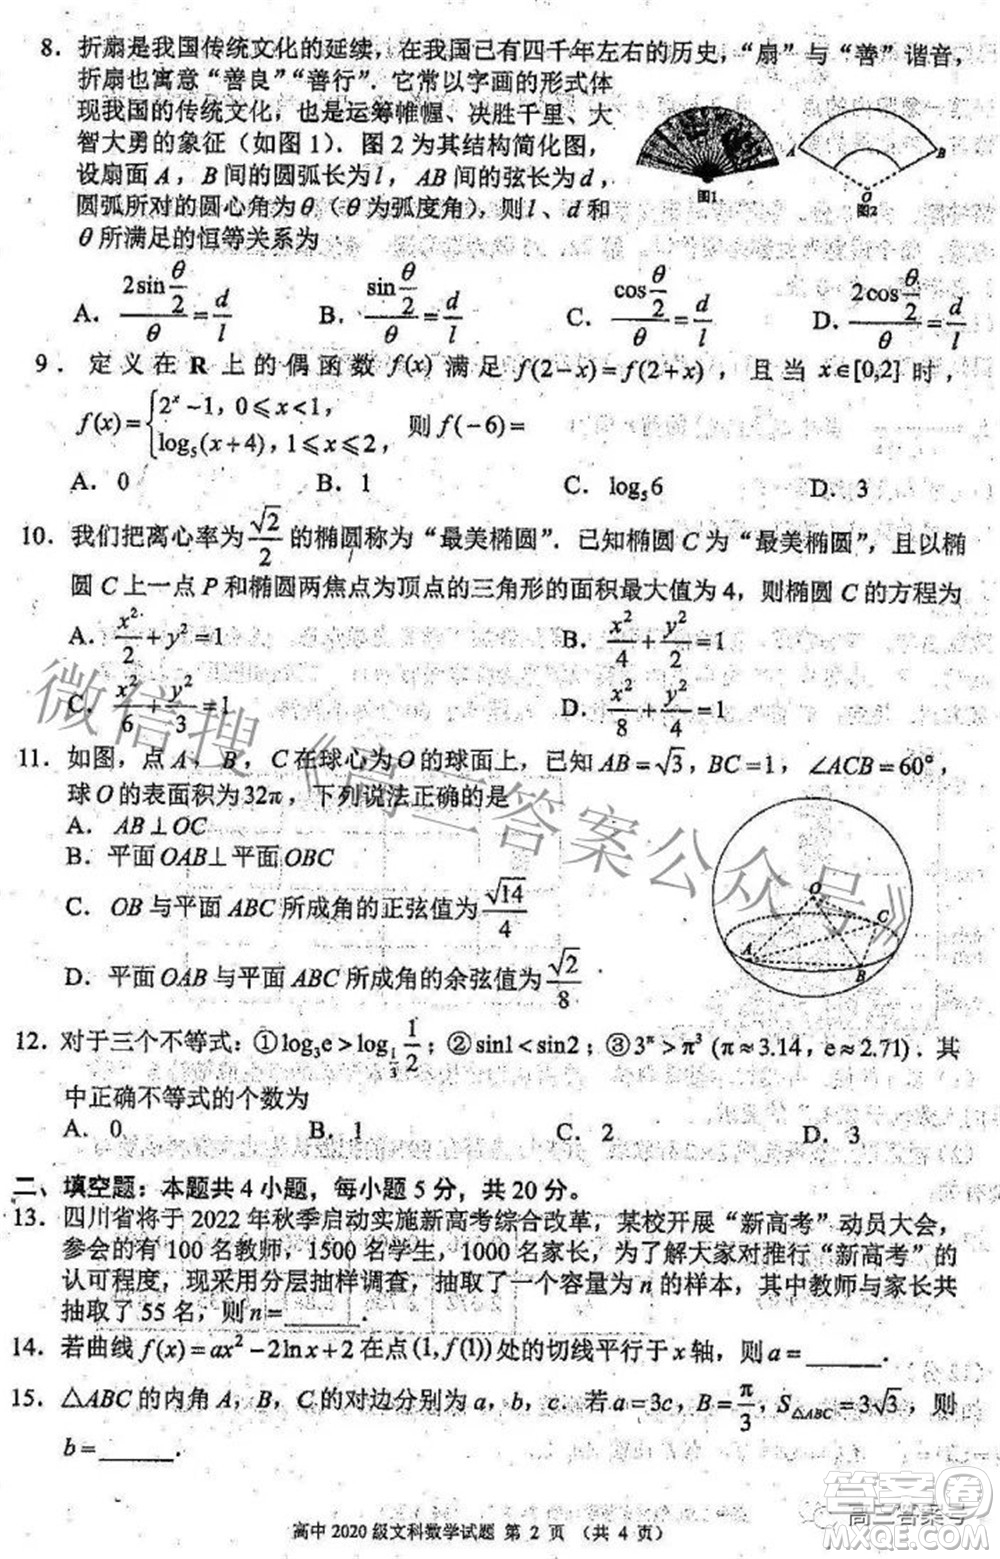 8．折扇是我国传统文化的延续，在我国已有四千年左右的历史，“扇”与“善”谐音，
折扇也寓意“善良”“善行”．它常以字画的形式体
现我国的传统文化，也是运筹帷幄、决胜千里、大
智大勇的象征（如图1）．图2为其结构简化图，
设扇面A，B间的圆弧长为l，AB间的弦长为d，
圆弧所对的圆心角为θ（θ为弧度角），则l、d和
θ所满足的恒等关系为
图1
A B O
图2
A．(2sin(θ/2))/θ=d/l B．(sin(θ/2))/θ=d/l C．(cos(θ/2))/θ=d/l D．(2cos(θ/2))/θ=d/l
9．定义在R上的偶函数f(x)满足f(2−x)=f(2+x)，且当x∈[0,2]时，
f(x)={2^x−1, 0⩽x<1, log₅(x+4), 1⩽x⩽2, 则f(−6)=
A．0 B．1 C．log₅6 D．3
10．我们把离心率为√2/2的椭圆称为“最美椭圆”．已知椭圆C为“最美椭圆”，且以椭
圆C上一点P和椭圆两焦点为顶点的三角形的面积最大值为4，则椭圆C的方程为
A．x²/2+y²=1 B．x²/4+y²/2=1
C．x²/6+y²/3=1 D．x²/8+y²/4=1
11．如图，点A，B，C在球心为O的球面上，已知AB=√3，BC=1，∠ACB=60°，
球O的表面积为32π，下列说法正确的是
A．AB⊥OC
B．平面OAB⊥平面OBC
C．OB与平面ABC所成角的正弦值为√14/4
D．平面OAB与平面ABC所成角的余弦值为√2/8
O A B C
12．对于三个不等式：①log₃e>log_{1/3}(1/2)；②sin1<sin2；③3^π>π³(π≈3.14，e≈2.71)．其
中正确不等式的个数为
A．0 B．1 C．2 D．3
二、填空题：本题共4小题，每小题5分，共20分。
13．四川省将于2022年秋季启动实施新高考综合改革，某校开展“新高考”动员大会，
参会的有100名教师，1500名学生，1000名家长，为了解大家对推行“新高考”的
认可程度，现采用分层抽样调查，抽取了一个容量为n的样本，其中教师与家长共
抽取了55名，则n=______．
14．若曲线f(x)=ax²−2lnx+2在点(1, f(1))处的切线平行于x轴，则a=______．
15．△ABC的内角A，B，C的对边分别为a，b，c．若a=3c，B=π/3，S△ABC=3√3，则
b=______．
高中2020级文科数学试题 第2页（共4页）
微信搜《高三答案公众号》
高三答案号
答案圈
MXQE.COM